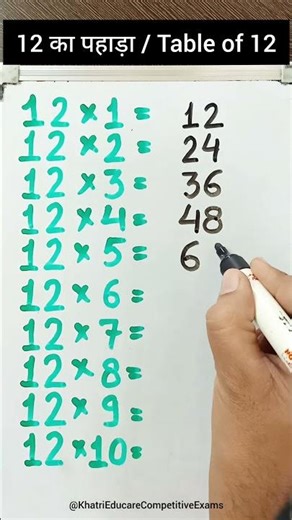 12 का पहाड़ा / Table of 12
12 × 1 = 12
12 × 2 = 24
12 × 3 = 36
12 × 4 = 48
12 × 5 = 6
12 × 6 =
12 × 7 =
12 × 8 =
12 × 9 =
12 × 10 =
@KhatriEducareCompetitiveExams